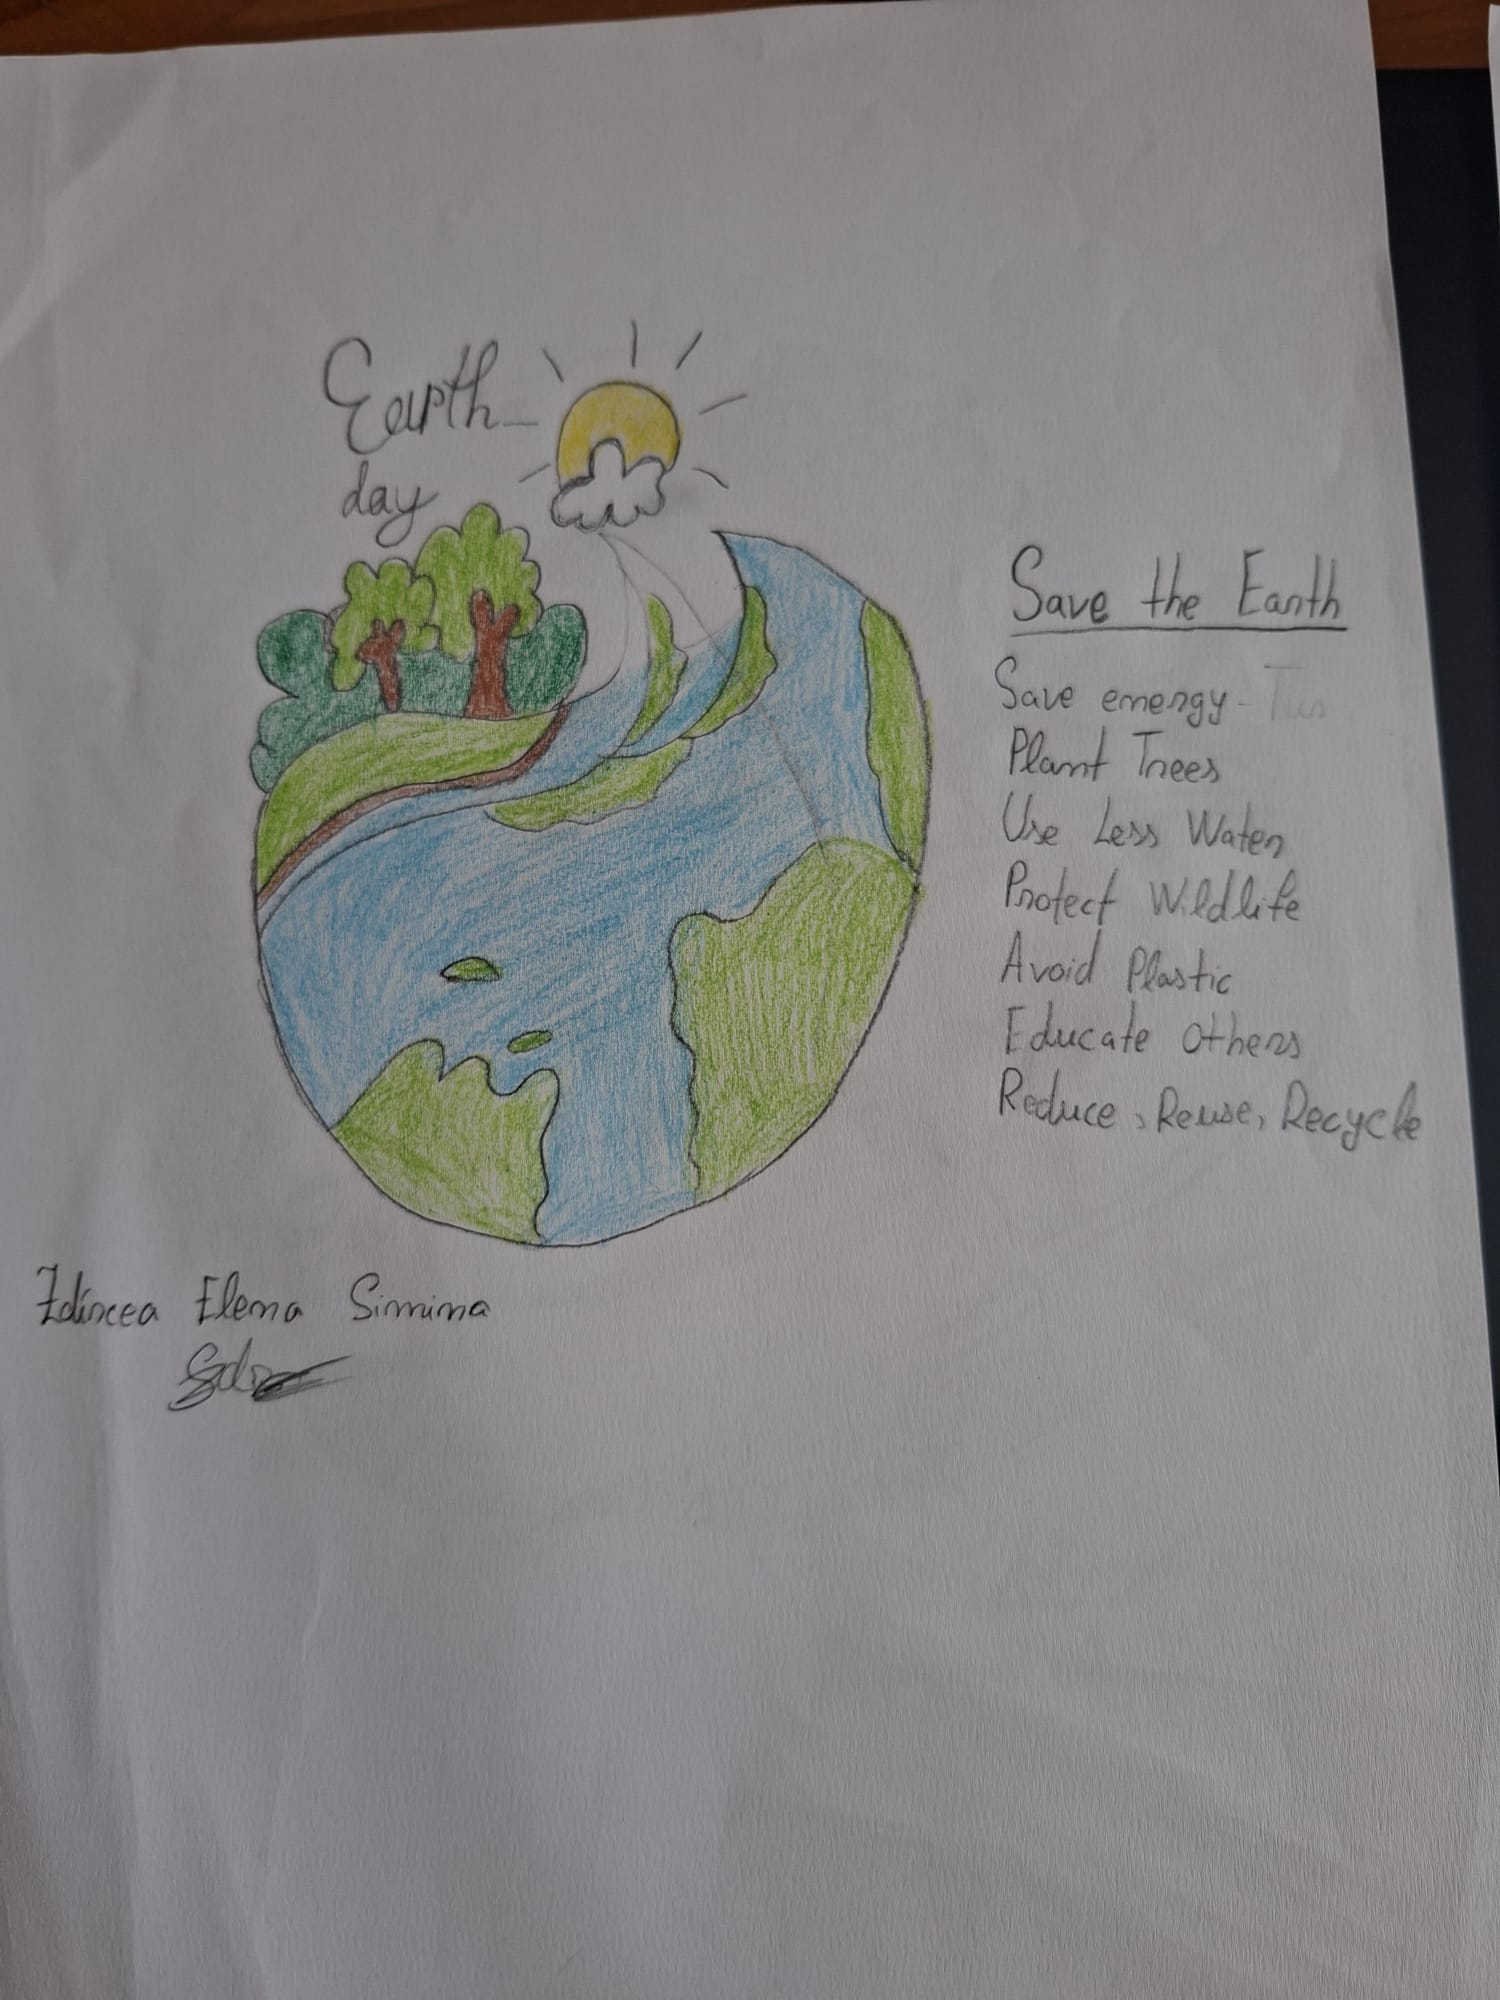 Earth
day
Save the Earth
Save energy -
Plant Trees
Use Less Water
Protect Wildlife
Avoid Plastic
Educate Others
Reduce, Reuse, Recycle
Elena Simina